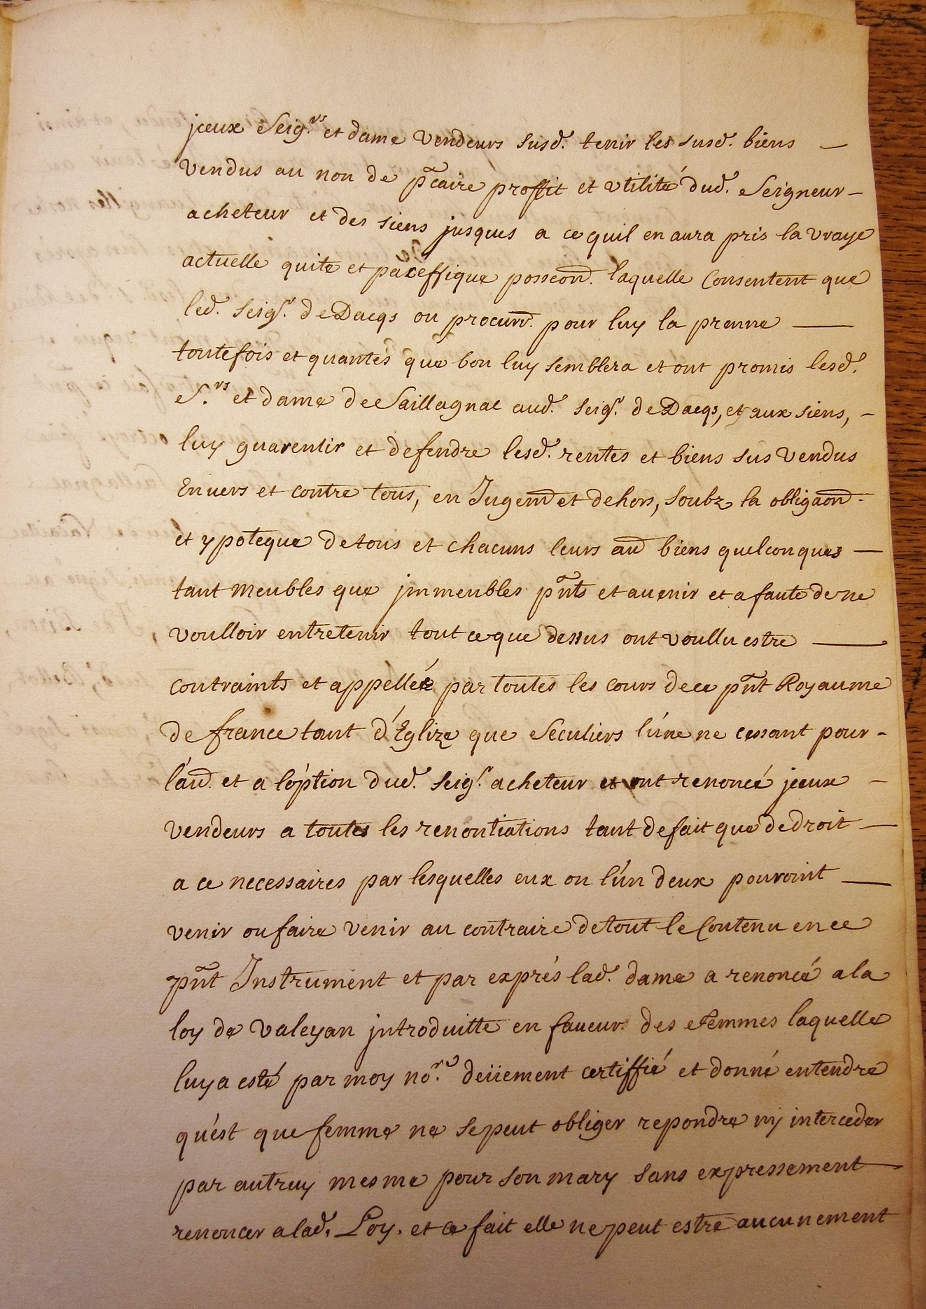 jceux Seig.rs et dame vendeurs susd. tenir les susd. biens —
vendus au non de pcaire proffit et vtilité dud. Seigneur –
acheteur et des siens jusques a ce quil en aura pris la vraye
actuelle quite et paceffique posseon. laquelle Consentent que
led. Seig.r de Dacqs ou procurr. pour luy la prenne ——
toutefois et quantes que bon luy semblera et ont promis lesd.
S.rs et dame de Saillagnac aud. Seig.r de Dacqs, et aux siens, –
luy guarentir et defendre lesd. rentes et biens sus vendus
Envers et contre tous, en Jugemt et dehors, soubz la obligaon.
et ypoteque de tous et chacuns leurs aud biens quelconques —
tant meubles que jmmeubles pnts et auenir et a faute de ne
voulloir entretenir tout ce que dessus ont voullu estre ——
contraints et appellés par toutes les cours de ce pnt Royaume
de france tant d'Eglize que Seculiers l'une ne cessant pour –
l'aud. et a l'option dud. Seig.r acheteur et ont renoncé jceux –
vendeurs a toutes les renontiations tant de fait que de droit —
a ce necessaires par lesquelles eux ou l'un deux pouroint —
venir ou faire venir au contraire de tout le Contenu en ce
pnt Instrument et par exprés lad. dame a renoncé a la
loy de valeyan jntroduitte en faueur des Femmes laquelle
luy a esté par moy no.re deüement certiffié et donné entendre
qu'est que femme ne se peut obliger repondre nj interceder
par autruy mesme pour son mary sans expressement
renoncer a lad. Loy, et ce fait elle ne peut estre aucunement